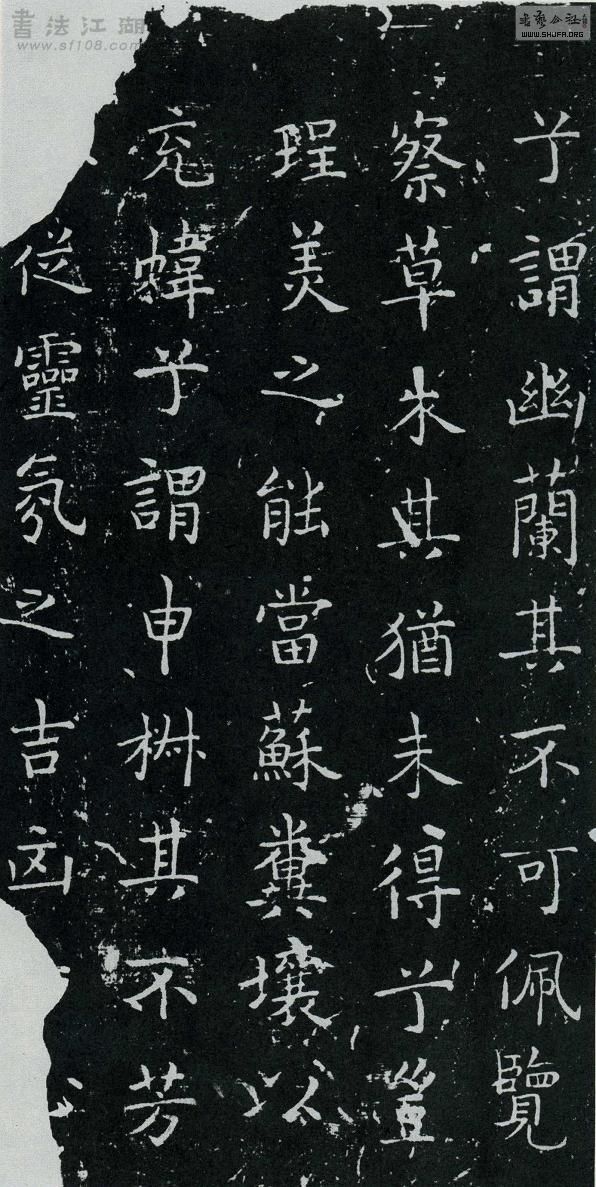 書法江湖
www.sf108.com
書藝公社
WWW.SHJFA.ORG
兮謂幽蘭其不可佩覽
察草木其猶未得兮豈
珵美之能當蘇糞壤以
充幃兮謂申椒其不芳
從靈氛之吉